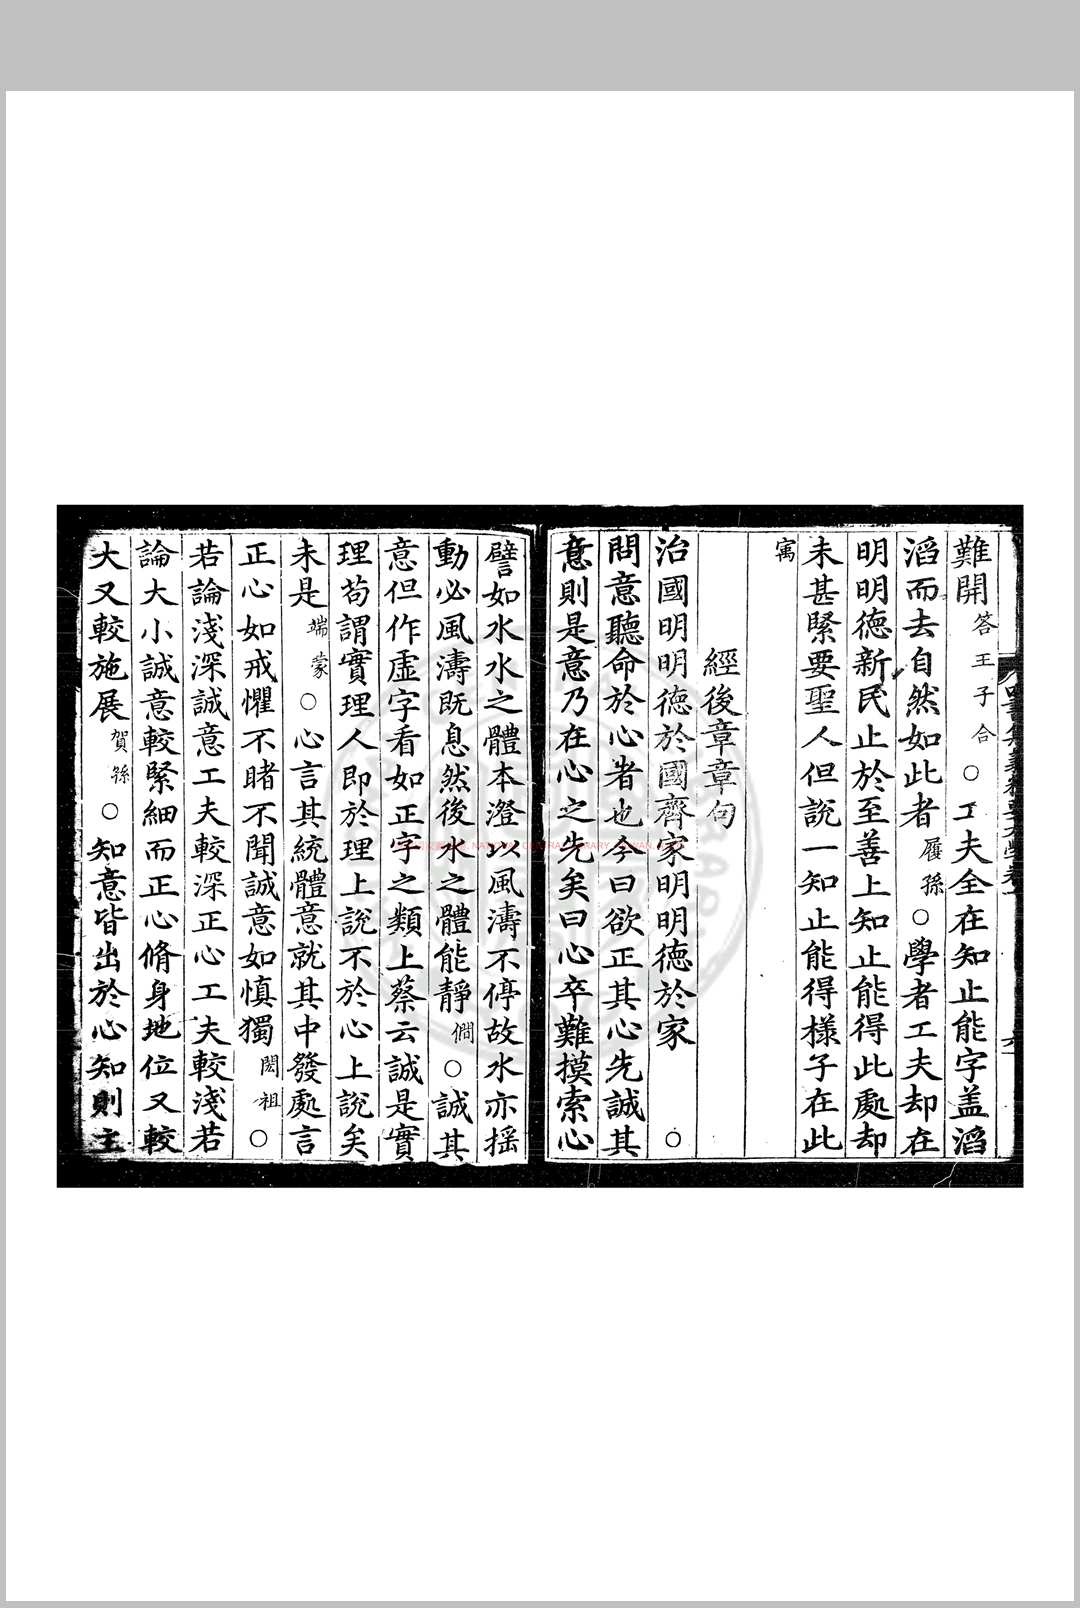 難開答王子合○工夫全在知止能字盖滔
滔而去自然如此者履孫○學者工夫却在
明明德新民止於至善上知止能得此處却
未甚緊要聖人但說一知止能得樣子在此
㝢
經後章章句
治國明明德於國齊家明明德於家○
問意聽命於心者也今曰欲正其心先誠其
意則是意乃在心之先矣曰心卒難摸索心
譬如水水之體本澄以風濤不停故水亦揺
動必風濤既息然後水之體能靜僩○誠其
意但作虛字看如正字之類上蔡云誠是實
理苟謂實理人即於理上說不於心上說矣
未是端蒙○心言其統體意就其中發處言
正心如戒懼不睹不聞誠意如慎獨閎祖○
若論淺深誠意工夫較深正心工夫較淺若
論大小誠意較緊細而正心脩身地位又較
大又較施展賀孫○知意皆出於心知則主